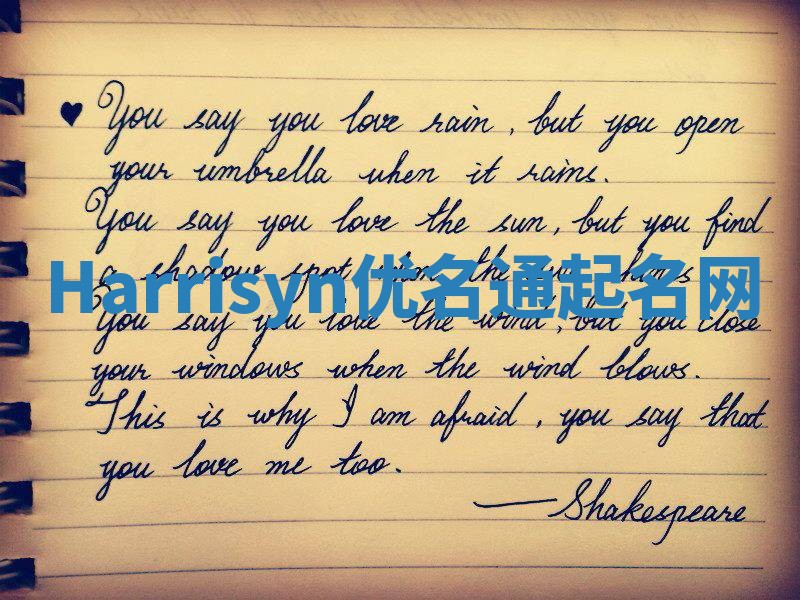 You say you love rain, but you open
your umbrella when it rains.
You say you love the sun, but you find
a shadow spot when the sun shines
Harrisyn优名通起名网
You say you love the wind, but you close
your windows when the wind blows.
This is why I am afraid, you say that
you love me too.
—Shakespeare